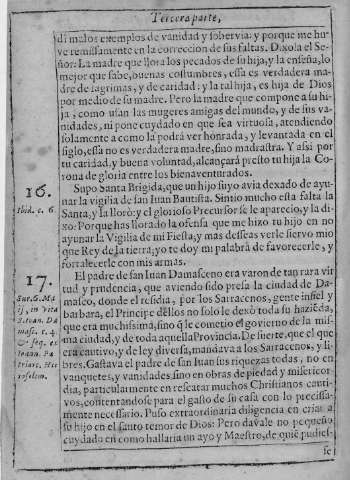 Tercera parte,
di malos exemplos de vanidad y sobervia: y porque me hu-
ve remissamente en la correccion de sus faltas. Dixola el Se-
ñor: La madre que llora los pecados de su hija, y la enseña, lo
mejor que sabe, buenas costumbres, essa es verdadera ma-
dre de lagrimas, y de caridad: y la tal hija, es hija de Dios
por medio de su madre. Pero la madre que compone a su hi-
ja, como usan las mugeres amigas del mundo, y de sus va-
nidades, ni pone cuydado en que sea virtuosa, atendiendo
solamente a como la podrà ver honrada, y levantada en el
siglo, essa no es verdadera madre, sino madrastra. Y assi por
tu caridad, y buena voluntad, alcançarà presto tu hija la Co-
rona de gloria entre los bienaventurados.
16.
Ibid. c. 6.
Supo Santa Brigida, que un hijo suyo avia dexado de ayu-
nar la vigilia de san Iuan Bautista. Sintio mucho esta falta la
Santa, y la llorò: y el glorioso Precursor se le aparecio, y la di-
xo: Porque has llorado la ofensa que me hizo tu hijo en no
ayunar la Vigilia de mi Fiesta, y mas desseas verle siervo mio
que Rey de la tierra, yo te doy mi palabra de favorecerle, y
fortalecerle con mis armas.
17.
Sur. 6. Ma
ij, in vita
S. Ioan. Da
masc. c. 4.
& seq. ex
Ioann. Pa
triarc. Hie
rosolim.
El padre de san Iuan Damasceno era varon de tan rara vir
tud y prudencia, que aviendo sido presa la ciudad de Da-
masco, donde el residia, por los Sarracenos, gente infiel y
barbara, el Principe dellos no solo le dexò toda su hazieda,
que era muchissima, sino q̃ le cometio el governo de la mis-
ma ciudad, y de toda aquella Provincia. De suerte, que el que
era cautivo, y de ley diversa, mandava a los Sarracenos, y li-
bres. Gastava el padre de san Iuan sus riquezas todas, no en
vanquetes, y vanidades, sino en obras de piedad y misericor-
dia, particularmente en rescatar muchos Christianos cauti-
vos, contentandose para el gasto de su casa con lo precissa-
mente necessario. Puso extraordinaria diligencia en criar a
su hijo en el santo temor de Dios: Pero davale no pequeño
cuydado en como hallaria un ayo y Maestro, de quiẽ pudies-
se